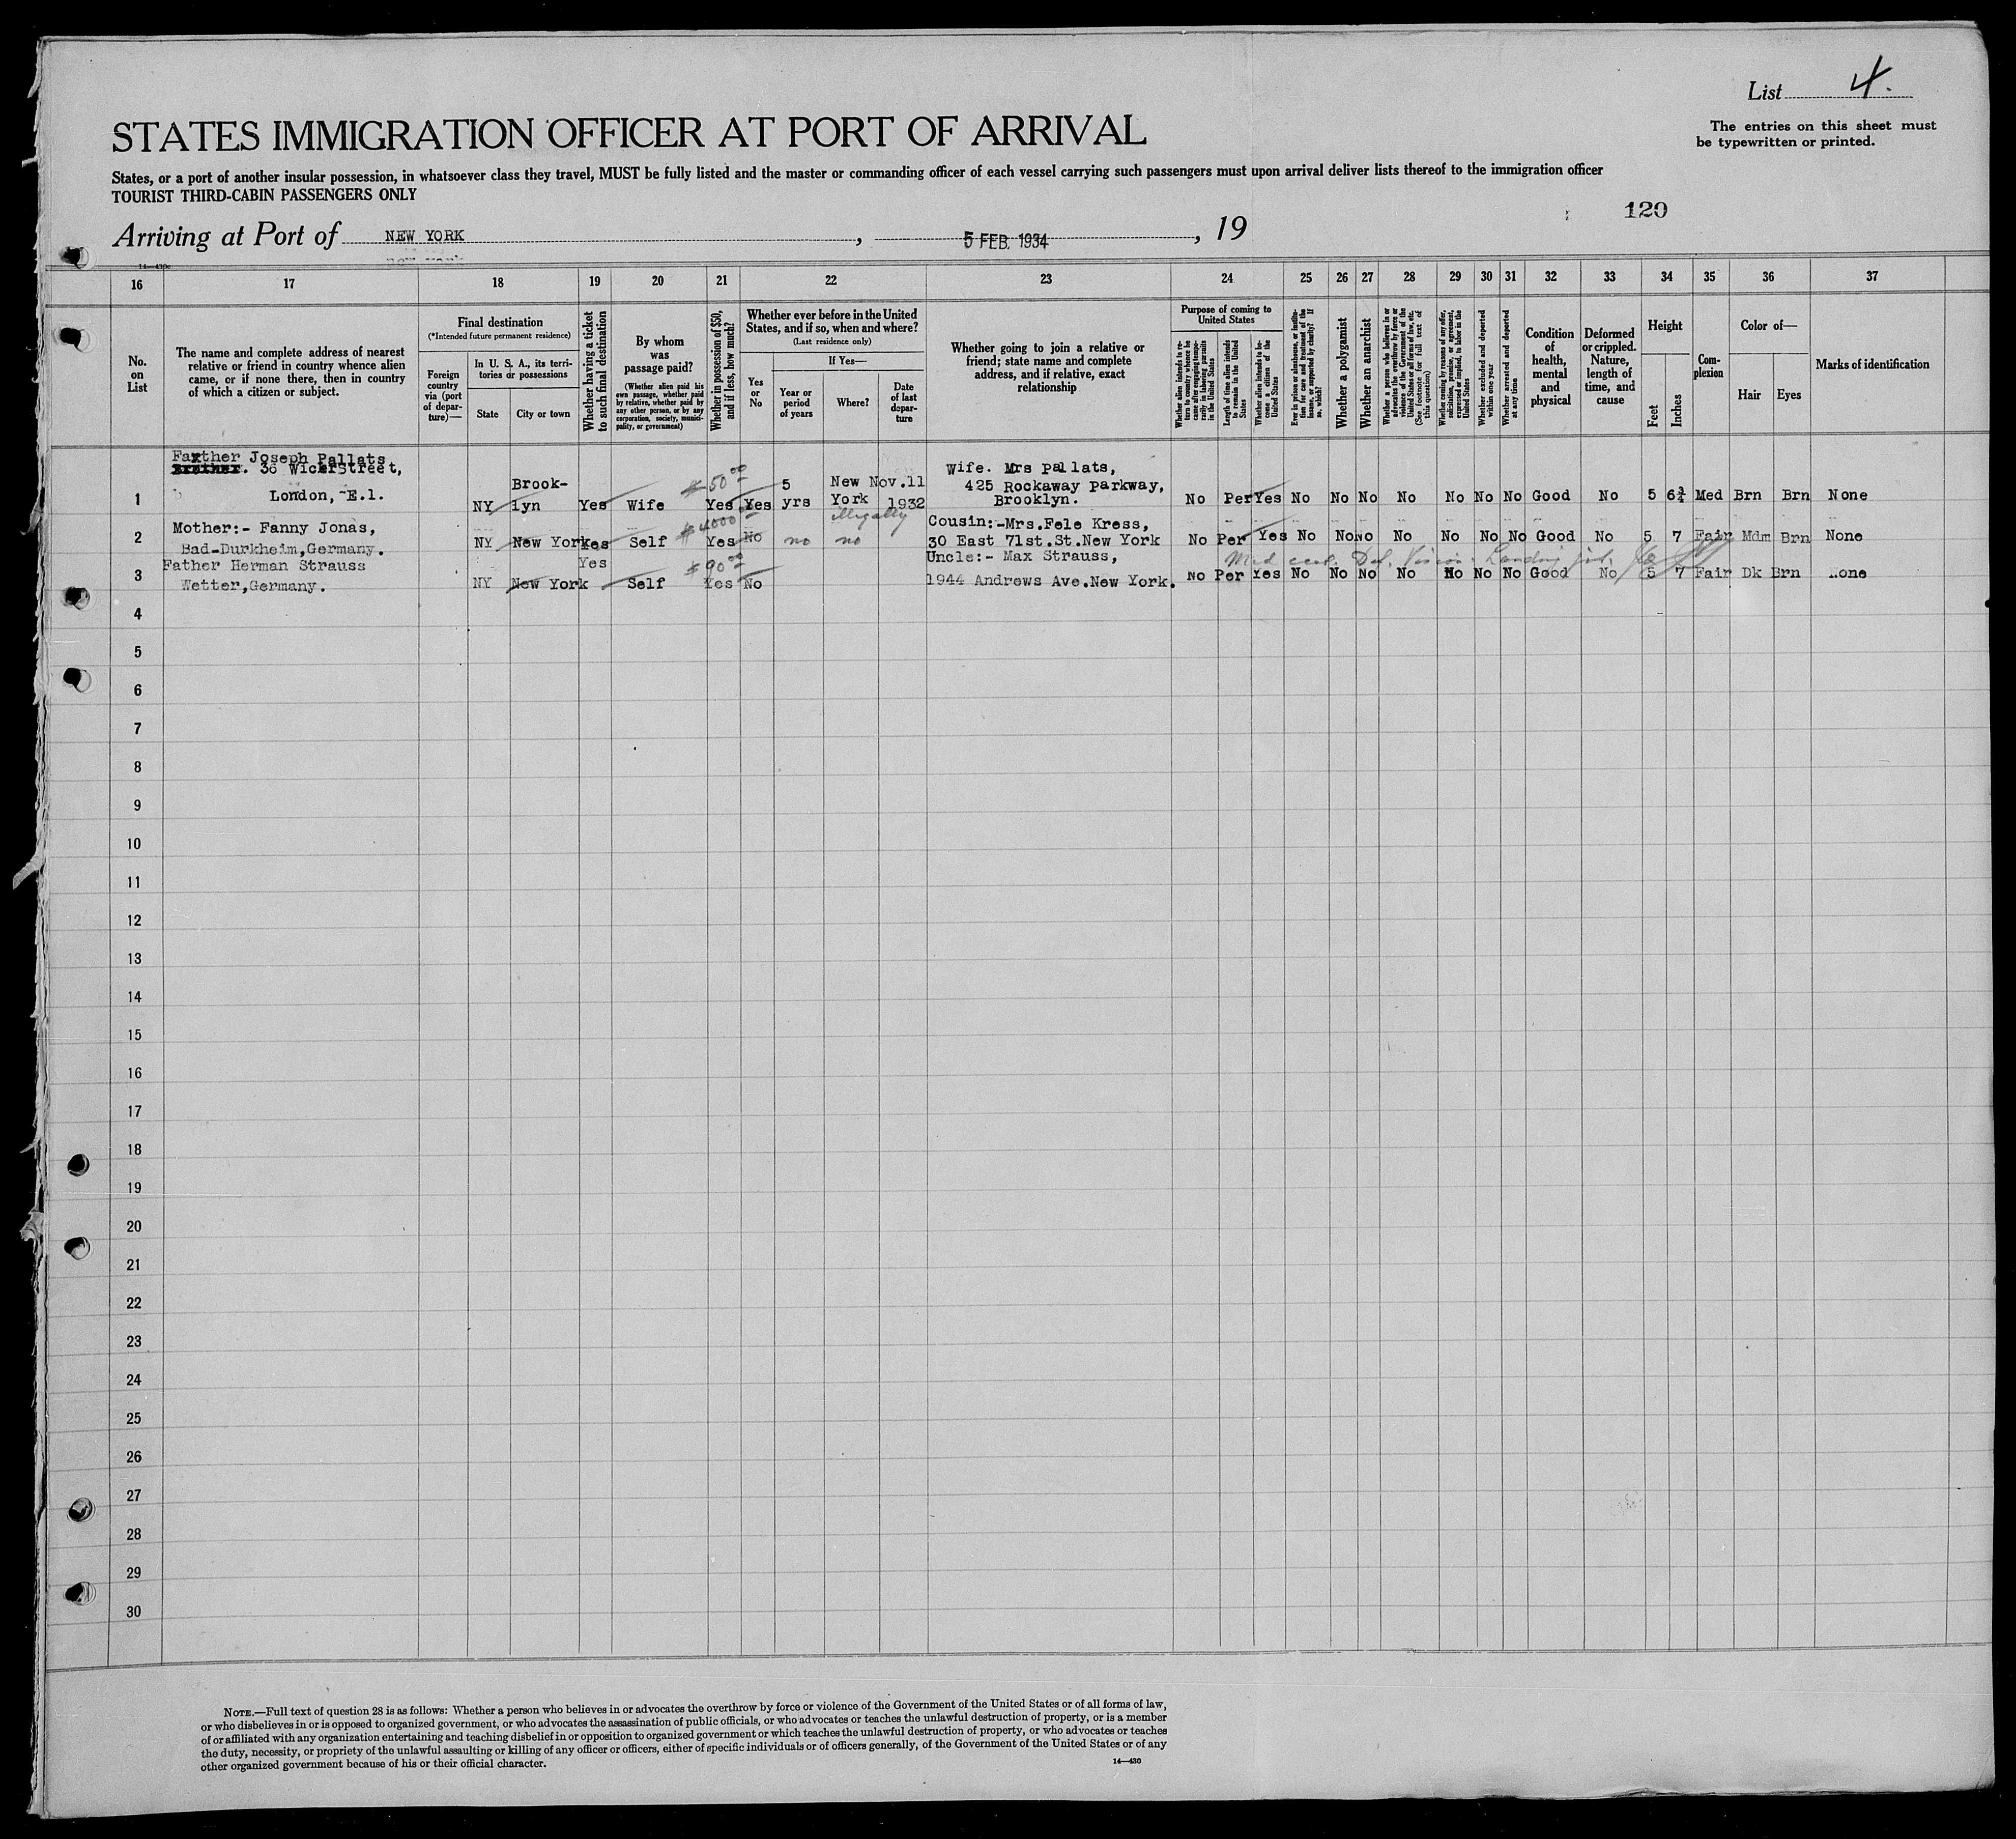 List 4.
The entries on this sheet must
be typewritten or printed.
STATES IMMIGRATION OFFICER AT PORT OF ARRIVAL
States, or a port of another insular possession, in whatsoever class they travel, MUST be fully listed and the master or commanding officer of each vessel carrying such passengers must upon arrival deliver lists thereof to the immigration officer
TOURIST THIRD-CABIN PASSENGERS ONLY
120
Arriving at Port of NEW YORK, 5 FEB. 1934, 19
16 17 18 19 20 21 22 23 24 25 26 27 28 29 30 31 32 33 34 35 36 37
No.
on
List
The name and complete address of nearest
relative or friend in country whence alien
came, or if none there, then in country
of which a citizen or subject.
Final destination
(*Intended future permanent residence)
Foreign
country
via (port
of depar-
ture)—
In U. S. A., its terri-
tories or possessions
State
City or town
Whether having a ticket
to such final destination
By whom
was
passage paid?
(Whether alien paid his
own passage, whether paid
by relative, whether paid by
any other person, or by any
corporation, society, munici-
pality, or government)
Whether in possession of $50,
and if less, how much?
Whether ever before in the United
States, and if so, when and where?
(Last residence only)
Yes
or
No
If Yes—
Year or
period
of years
Where?
Date
of last
depar-
ture
Whether going to join a relative or
friend; state name and complete
address, and if relative, exact
relationship
Purpose of coming to
United States
Whether alien intends to re-
turn to country whence he
came after engaging tempo-
rarily in laboring pursuits
in the United States
Length of time alien intends
to remain in the United
States
Whether alien intends to be-
come a citizen of the
United States
Ever in prison or almshouse, or institu-
tion for care and treatment of the
insane, or supported by charity? If
so, which?
Whether a polygamist
Whether an anarchist
Whether a person who believes in or
advocates the overthrow by force or
violence of the Government of the
United States or all forms of law, etc.
(See footnote for full text of
this question)
Whether coming by reasons of any offer,
solicitation, promise, or agreement,
expressed or implied, to labor in the
United States
Whether excluded and deported
within one year
Whether arrested and deported
at any time
Condition
of
health,
mental
and
physical
Deformed
or crippled.
Nature,
length of
time, and
cause
Height
Feet
Inches
Com-
plexion
Color of—
Hair
Eyes
Marks of identification
Father Joseph Pallats
36 Wickerstreet,
London, E.1.
1 NY Brook-
lyn Yes Wife $50.00 Yes Yes 5
yrs New
York Nov.11
1932
illegally
Wife. Mrs Pallats,
425 Rockaway Parkway,
Brooklyn.
No Per Yes No No No No No No No Good No 5 6¾ Med Brn Brn None
Mother:- Fanny Jonas,
2 Bad-Durkheim,Germany. NY New York Yes Self $4000 Yes No no no
Cousin:-Mrs.Fele Kress,
30 East 71st.St.New York No Per Yes No No No No No No No Good No 5 7 Fair Mdm Brn None
Father Herman Strauss
3 Wetter,Germany. NY New York Yes Self $90.00 Yes No
Uncle:- Max Strauss,
1944 Andrews Ave.New York. No Per Yes No No No No No No No Good No 5 7 Fair Dk Brn None
4
5
6
7
8
9
10
11
12
13
14
15
16
17
18
19
20
21
22
23
24
25
26
27
28
29
30
NOTE.—Full text of question 28 is as follows: Whether a person who believes in or advocates the overthrow by force or violence of the Government of the United States or of all forms of law,
or who disbelieves in or is opposed to organized government, or who advocates the assassination of public officials, or who advocates or teaches the unlawful destruction of property, or is a member
of or affiliated with any organization entertaining and teaching disbelief in or opposition to organized government or which teaches the unlawful destruction of property, or who advocates or teaches
the duty, necessity, or propriety of the unlawful assaulting or killing of any officer or officers, either of specific individuals or of officers generally, of the Government of the United States or of any
other organized government because of his or their official character.
14—430